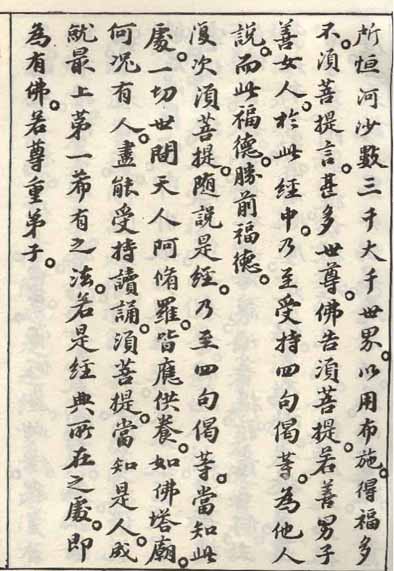 所恒河沙數三千大千世界。以用布施。得福多
不。須菩提言。甚多。世尊。佛告須菩提。若善男子
善女人。於此經中。乃至受持四句偈等。為他人
說。而此福德。勝前福德。
復次須菩提。隨說是經。乃至四句偈等。當知此
處。一切世間天人阿脩羅。皆應供養。如佛塔廟。
何況有人。盡能受持讀誦。須菩提。當知是人。成
就最上第一希有之法。若是經典所在之處。即
為有佛。若尊重弟子。